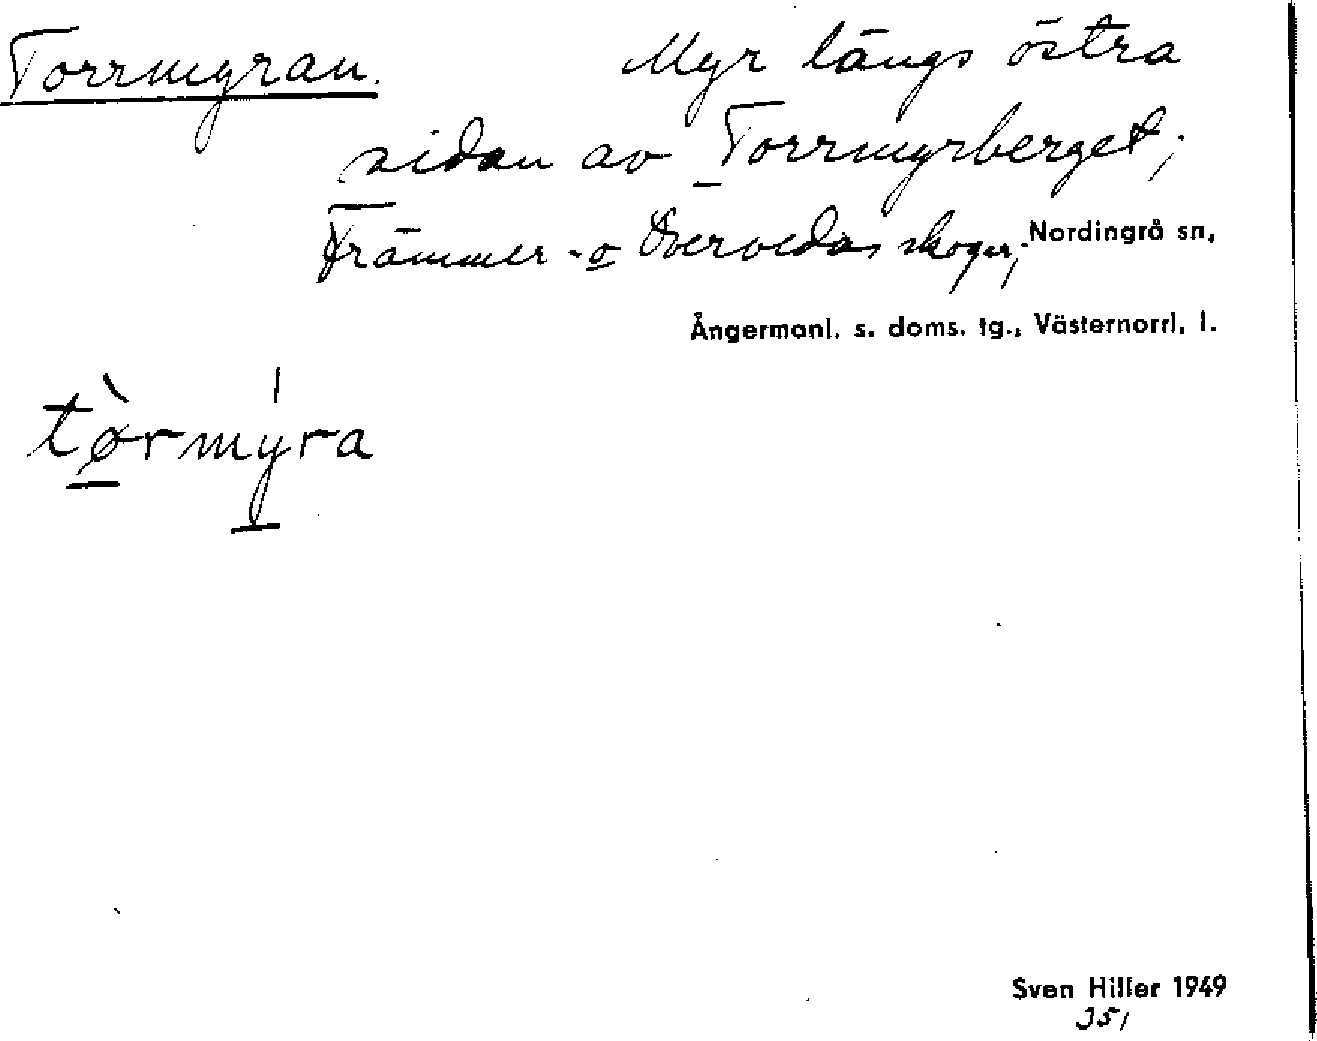 Torrmyran. Myr längs östra
sidan av Torrmyrberget;
Främmer - o Övervedas skogar; Nordingrå sn,
Ångermanl. s. doms. tg., Västernorrl. l.
tørmyra
Sven Hiller 1949
351